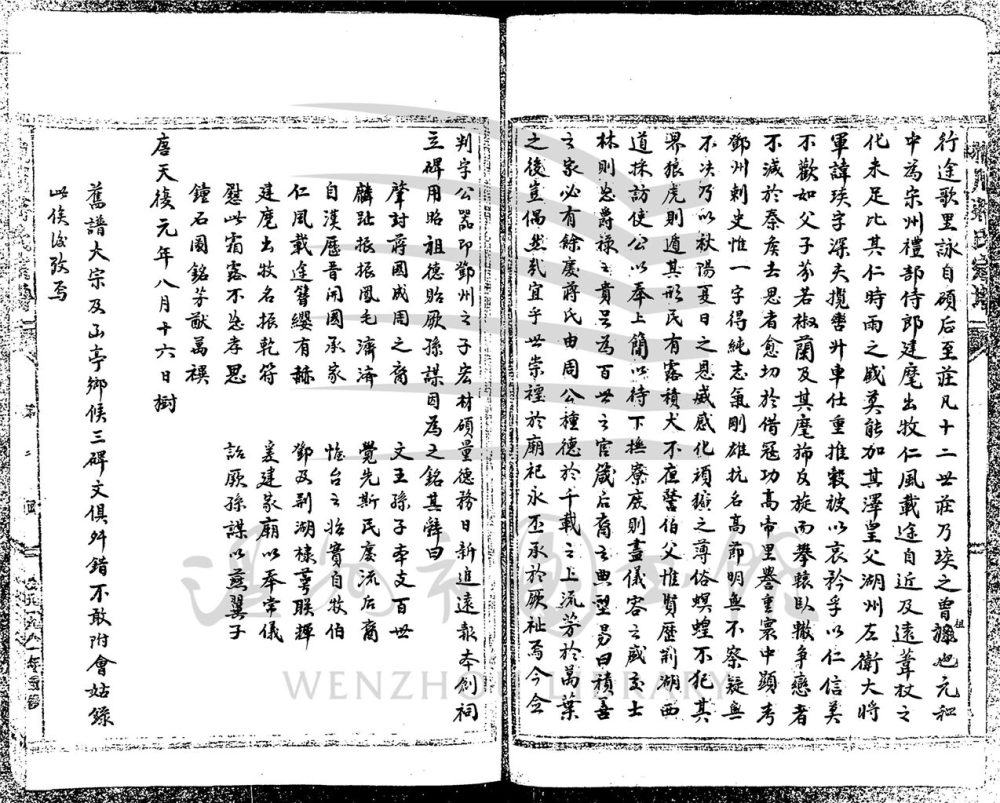 行途歌里詠自碩后至莊凡十二世莊乃琰之曾祖也元和
中為宗州禮部侍郎建麾出牧仁風載途自近及遠葦杖之
化未足比其仁時雨之感莫能加其澤皇父湖州左衛大將
軍諱琰字深夫攬轡升車仕重推轂被以哀矜孚以仁信美
不歡如父子芬若椒蘭及其麾旆反旋而攀轅臥轍爭戀者
不減於秦矣去思者愈切於借寇功高帝里譽重寰中顯考
鄧州刺史惟一字得純志氣剛雄抗名高節明無不察疑無
不決乃以秋陽夏日之恩威感化頑獷之薄俗螟蝗不犯其
界狼虎則遁其形民有露積犬不夜警伯父惟賢歷荊湖西
道採訪使公以奉上簡以待下撫寮庶則盡儀容之盛交士
林則忘爵祿之貴是為百世之官箴后裔之典型易曰積善
之家必有餘慶蔣氏由周公種德於千載之上流芳於萬葉
之後豈偶然哉宜乎世崇禋於廟祀永丕承於厥祉焉今令
判字公器即鄧州之子宏材碩量德務日新追遠報本創祠
立碑用昭祖德貽厥孫謀因為之銘其辭曰
肇封蔣國咸周之裔 文王孫子本支百世
麟趾振振鳳毛濟濟 覺先斯民慶流后裔
自漢歷晉開國承家 惟台之貽賁自牧伯
仁風載途簪纓有赫 鄧及荊湖棣萼聯輝
建麾出牧名振乾符 爰建家廟以奉常儀
慰此霜露不忘孝思 詒厥孫謀以燕翼子
鐘石園銘芳猷萬禩
唐天復元年八月十六日樹
舊譜大宗及山亭鄉候三碑文俱舛錯不敢附會姑錄
此俟後攷焉
溫州市圖書館
WENZHOU LIBRARY